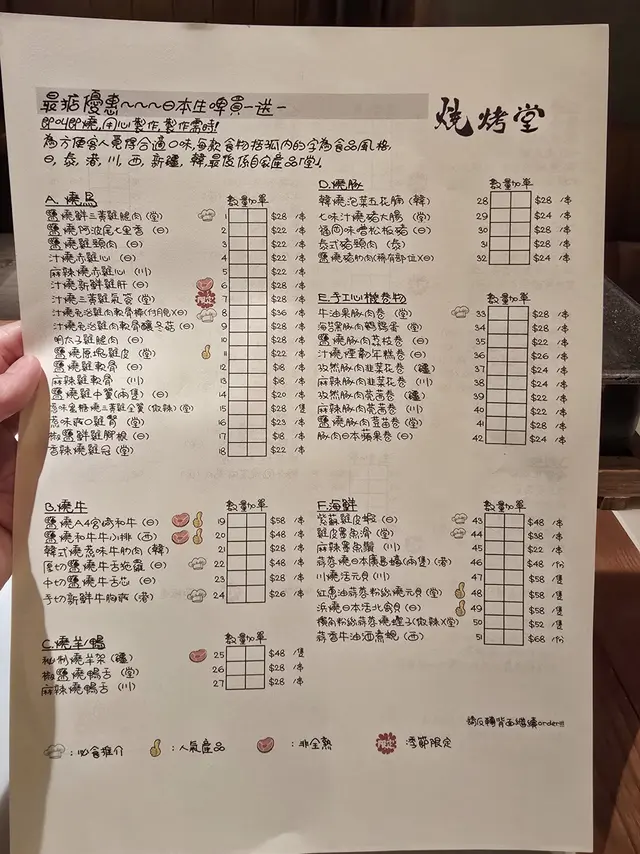 最癲優惠~~~日本生啤買一送一
燒烤堂
即叫即燒,用心製作,製作需時!
為方便客人覓得合適口味,每款食物括弧內的字為食品風格,
日,泰,港,川,西,新疆,韓,最後係自家產品「堂」.
A.燒鳥
數量加單
鹽燒鮮三黃雞腿肉(堂) 1 $28 /串
鹽燒阿波尾七里香(日) 2 $22 /串
鹽燒雞頸肉(日) 3 $22 /串
汁燒赤雞心(日) 4 $22 /串
麻辣燒赤雞心(川) 5 $22 /串
汁燒新鮮雞肝(日) 6 $28 /串
汁燒三黃雞氣管(堂) 限定 7 $28 /串
汁燒免治雞肉軟骨棒(付月見)(日) 8 $36 /串
汁燒免治雞肉軟骨釀冬菇(日) 9 $28 /串
明太子雞腿肉(日) 10 $28 /串
鹽燒原塊雞皮(堂) 11 $22 /串
鹽燒雞軟骨(日) 12 $8 /串
麻辣雞軟骨(川) 13 $8 /串
鹽燒雞中翼(兩隻)(日) 14 $20 /串
蜜糖燒三黃雞全翼(微辣)(堂) 15 $28 /隻
雞腎(堂) 16 $23 /串
椒鹽鮮雞腳根(日) 17 $8 /串
香辣燒雞冠(堂) 18 $22 /串
B.燒牛
數量加單
鹽燒A4宮崎和牛(日) 19 $58 /串
鹽燒和牛牛小排(西) 20 $48 /串
韓式燒蔥味牛肋肉(韓) 21 $28 /串
厚切鹽燒牛舌(日) 22 $48 /串
中切鹽燒牛舌芯(日) 23 $28 /串
手切新鮮牛胸(港) 24 $26 /串
C.燒羊/鴨
數量加單
秘制燒羊架(疆) 25 $48 /隻
椒鹽燒鴨舌(堂) 26 $28 /串
麻辣燒鴨舌(川) 27 $28 /串
D.燒豚
數量加單
韓燒泡菜五花腩(韓) 28 $28 /串
七味汁燒豬大腸(堂) 29 $24 /串
福岡味噌松板豬(日) 30 $28 /串
泰式豬頸肉(泰) 31 $28 /串
鹽燒豬肋肉(稀有部位)(日) 32 $24 /串
E.手工心機卷物
數量加單
牛油果豚肉卷(堂) 33 $28 /串
海苔豚肉鵪鶉蛋(堂) 34 $28 /串
鹽燒豚肉荔枝卷(日) 35 $28 /串
汁燒煙肉年糕卷(日) 36 $28 /串
孜然豚肉韮菜花卷(疆) 37 $24 /串
麻辣豚肉韮菜花卷(川) 38 $24 /串
孜然豚肉芫茜卷(疆) 39 $22 /串
麻辣豚肉芫茜卷(川) 40 $22 /串
鹽燒豚肉芫茜卷(堂) 41 $28 /串
豚肉日本蘋果卷(日) 42 $24 /串
F.海鮮
數量加單
紫蘇雞皮蝦(日) 43 $48 /串
雞皮墨魚滑(堂) 44 $38 /串
麻辣墨魚鬚(川) 45 $22 /串
蒜蓉燒日本廣島蠔(兩隻)(港) 46 $48 /份
川燒活元貝(川) 47 $58 /隻
紅蔥油蒜蓉粉絲燒元貝(堂) 48 $58 /隻
浜燒日本活北寄貝(日) 49 $58 /隻
粉絲蒜蓉燒蟶子(微辣)(堂) 50 $52 /隻
蒜香牛油酒煮蜆(西) 51 $68 /份
請反轉背面繼續order!!!
:必食推介 :人氣產品 :非全熟 限定 :季節限定